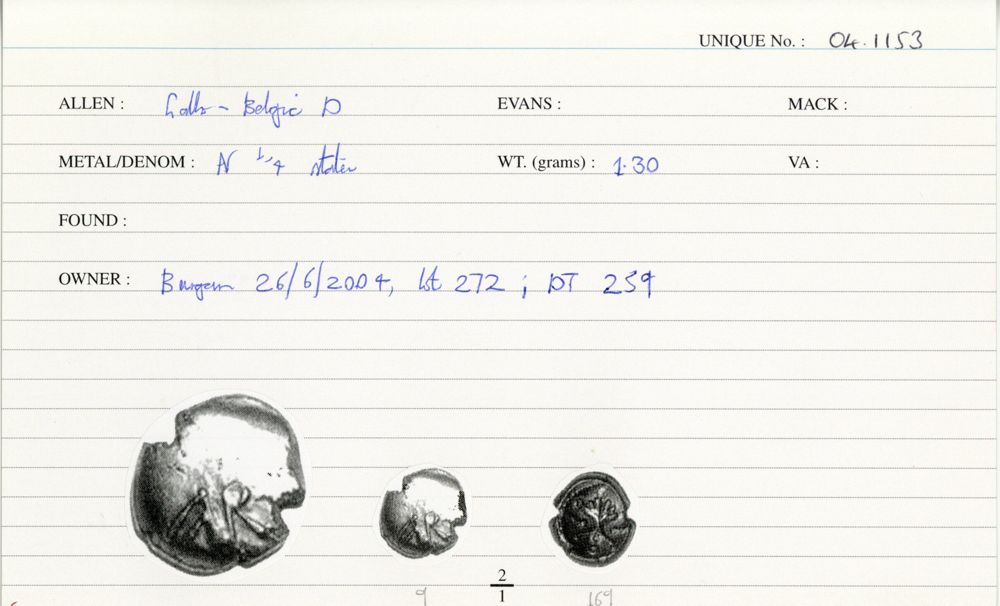 UNIQUE No. : 04.1153
ALLEN : Gallo-Belgic D EVANS : MACK :
METAL/DENOM : N 1/4 stater WT. (grams) : 1.30 VA :
FOUND :
OWNER : 26/6/2004, lot 272 ; DT 259
2
9 1 169